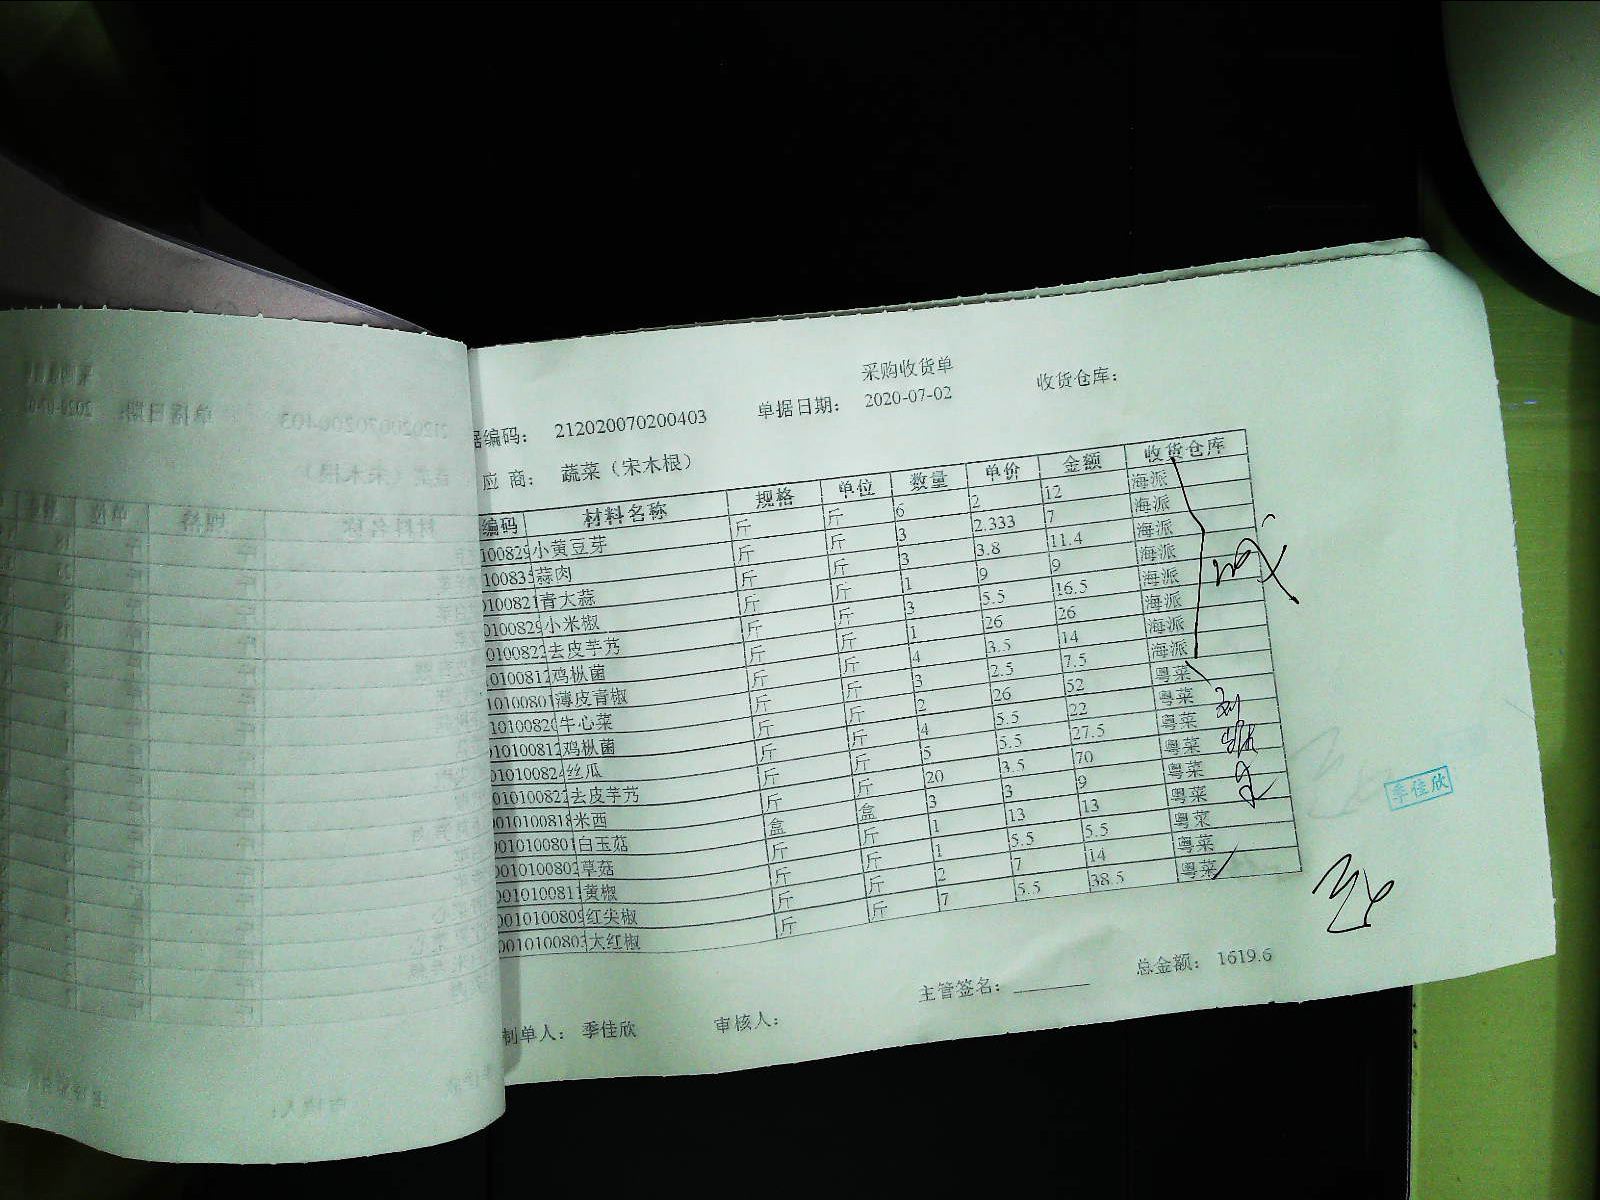 采购收货单
据编码： 212020070200403 单据日期： 2020-07-02 收货仓库：
应 商： 蔬菜（宋木根）
编码 材料名称 规格 单位 数量 单价 金额 收货仓库
100829 小黄豆芽 斤 斤 6 2 12 海派
100835 蒜肉 斤 斤 3 2.333 7 海派
0100821 青大蒜 斤 斤 3 3.8 11.4 海派
0100829 小米椒 斤 斤 1 9 9 海派
0100822 去皮芋艿 斤 斤 3 5.5 16.5 海派
0100812 鸡枞菌 斤 斤 1 26 26 海派
10100801 薄皮青椒 斤 斤 4 3.5 14 海派
10100820 牛心菜 斤 斤 3 2.5 7.5 海派
010100812 鸡枞菌 斤 斤 2 26 52 粤菜
010100824 丝瓜 斤 斤 4 5.5 22 粤菜
010100822 去皮芋艿 斤 斤 5 5.5 27.5 粤菜
0010100818 米西 斤 斤 20 3.5 70 粤菜
0010100801 白玉菇 盒 盒 3 3 9 粤菜
0010100802 草菇 斤 斤 1 13 13 粤菜
0010100811 黄椒 斤 斤 1 5.5 5.5 粤菜
0010100809 红尖椒 斤 斤 2 7 14 粤菜
0010100803 大红椒 斤 斤 7 5.5 38.5 粤菜
季佳欣
主管签名： 总金额： 1619.6
制单人： 季佳欣 审核人：